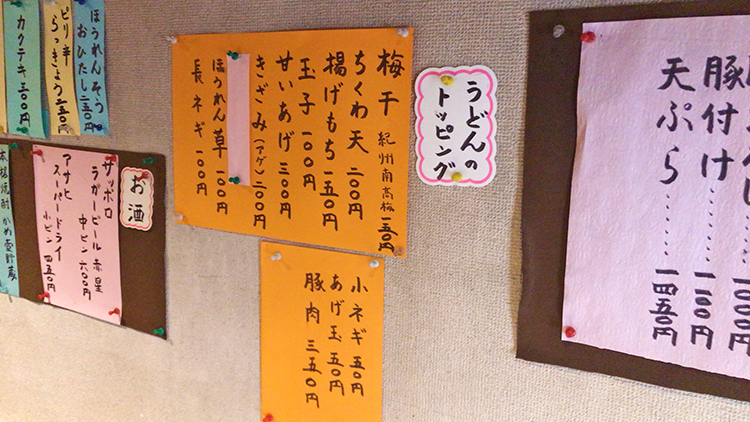 豚付け……一一〇〇円
天ぷら……一四五〇円
うどんの
トッピング
梅干 紀州南高梅 一五〇円
ちくわ天 二〇〇円
揚げもち 一五〇円
玉子 一〇〇円
甘いあげ 三〇〇円
きざみ(アゲ) 二〇〇円
ほうれん草 一〇〇円
長ネギ 一〇〇円
小ネギ 五〇円
あげ玉 五〇円
豚肉 三五〇円
ほうれんそう
おひたし 二五〇円
ピリ辛
らっきょう 二五〇円
カクテキ 三〇〇円
お酒
サッポロ
ラガービール 赤星
中ビン 六〇〇円
アサヒ
スーパードライ
小ビン 四五〇円
本格焼酎 かめ壷貯蔵